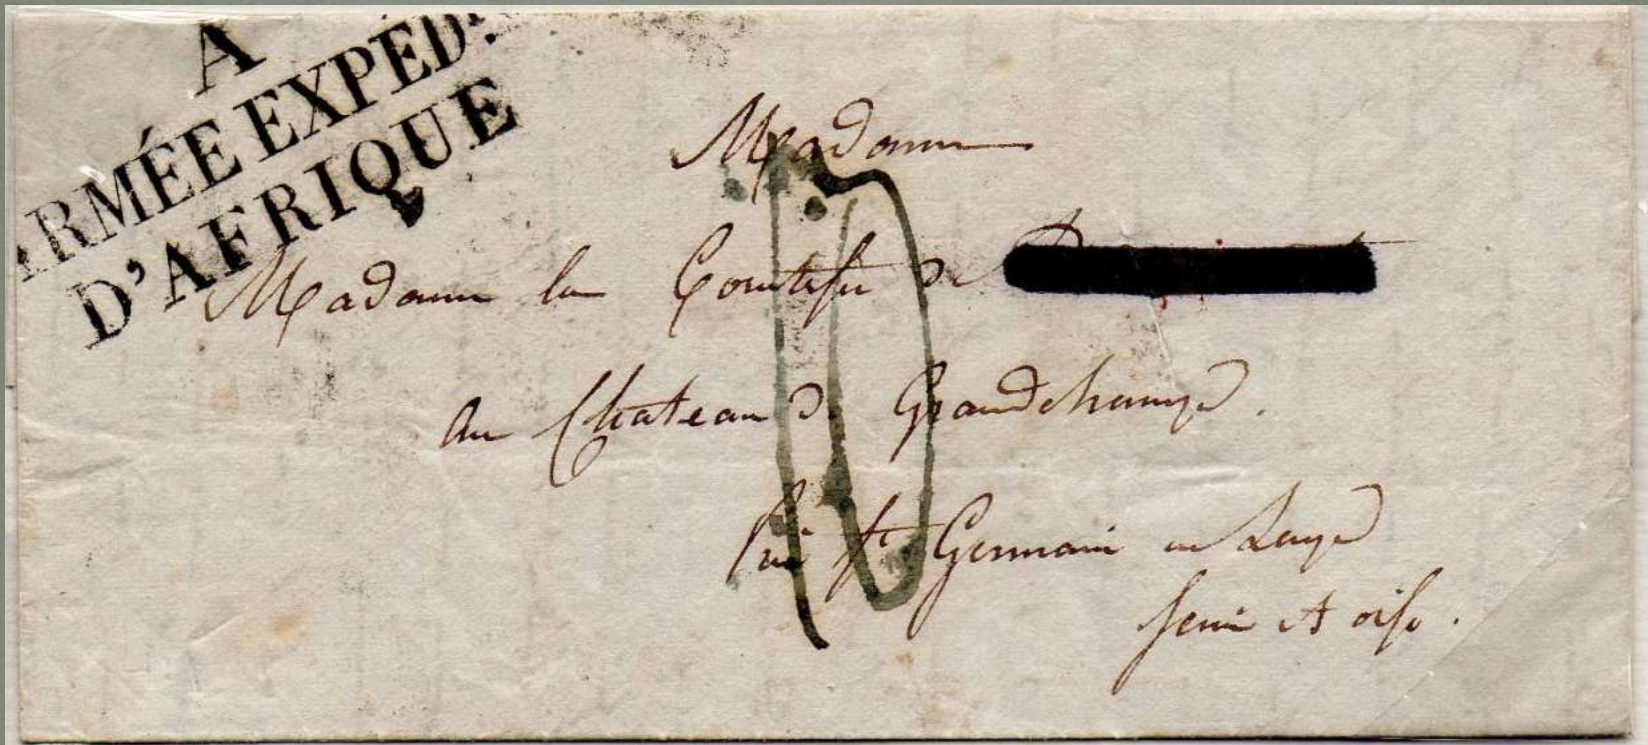 A
ARMÉE EXPÉD.
D'AFRIQUE
Madame
Madame la Comtesse de
au Chateau de Grandchamp.
Près St Germain en Laye
Seine et oise.
10